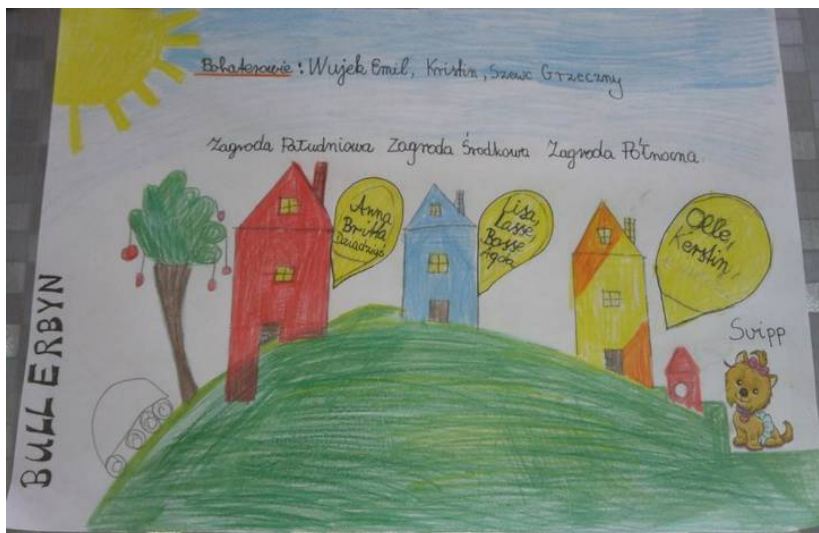 Bohaterowie: Wujek Emil, Kristin, Szewc Grzeczny
Zagroda Południowa Zagroda Środkowa Zagroda Północna
Anna
Britta
Dziadziuś
Lisa,
Lasse,
Bosse
Agda
Olle,
Kerstin,
Svipp
BULLERBYN